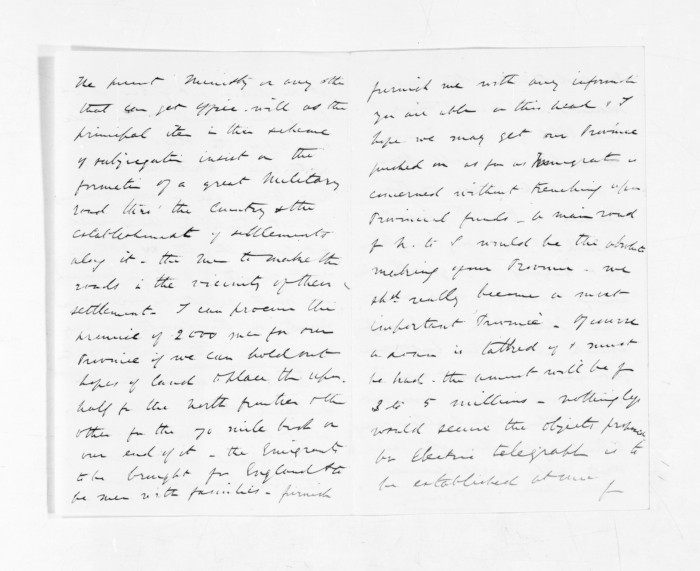 The present Ministry or any other
that can get office - will as the
principal item in their scheme
of subjugation insist on the
formation of a great Military
road thro' the Country & the
establishment of settlements
along it - the men to make the
roads in the vicinity of their
settlement - I can procure the
promise of 2000 men for our
Province if we can hold out
hopes of land to place them upon.
half for the North frontier & the
other for the 70 mile bush on
our end of it - the Emigrants
to be brought from England & to
be men with families - furnish
furnish me with any informati
you are able on this head, & I
hope we may get our Province
pushed on as far as Immigration is
concerned without trenching upon
Provincial funds - A main road
fr N. to S would be the absolute
making of our Province - we
shd. really become a most
important Province - Of course
a Loan is talked of & must
be had - the amount will be fr
3 to 5 millions - nothing less
would secure the objects
An Electric telegraph is to
be established at once